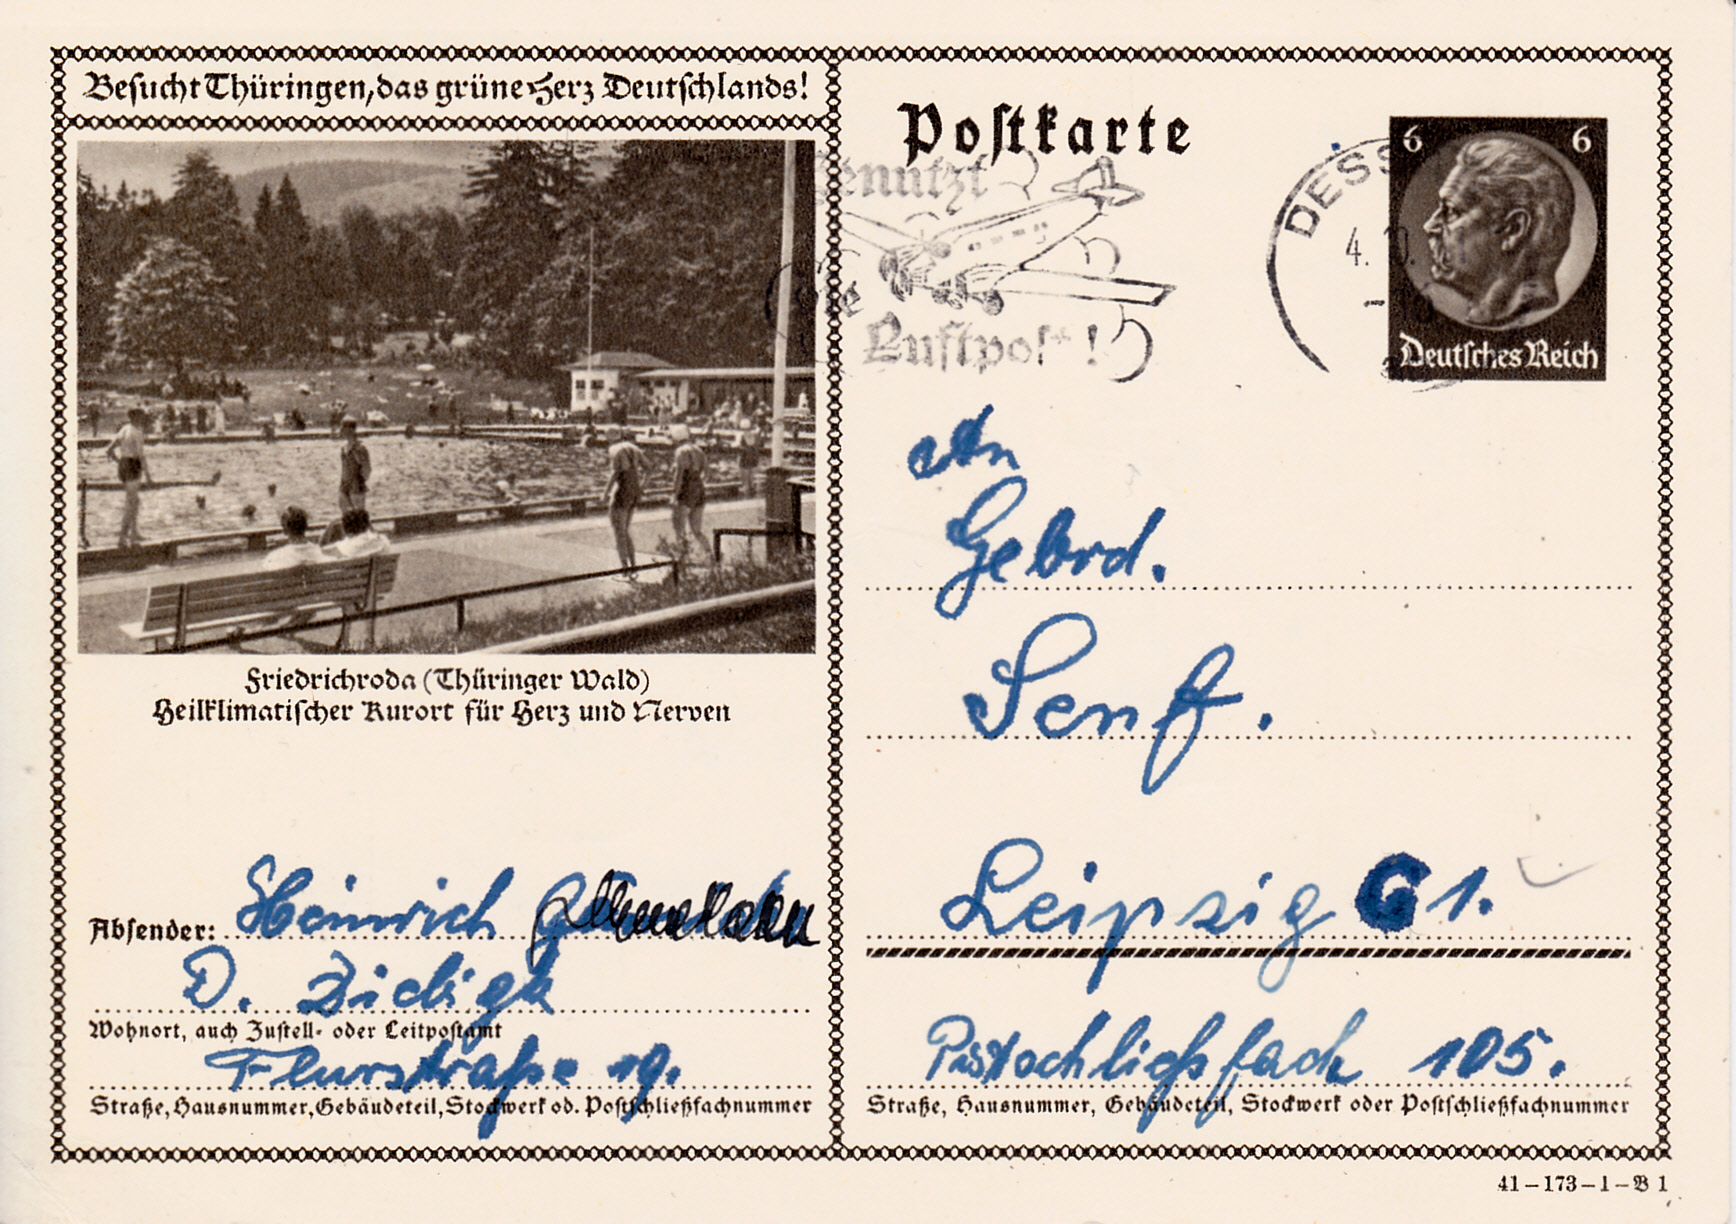 Besucht Thüringen, das grüne Herz Deutschlands!
Postkarte
Benutzt
die
Luftpost!
DESS
4. 10.
6 6
Deutsches Reich
Friedrichroda (Thüringer Wald)
Heilklimatischer Kurort für Herz und Nerven
An
Gebrd.
Senf.
Leipzig C 1.
Postschließfach 105.
Straße, Hausnummer, Gebäudeteil, Stockwerk oder Postschließfachnummer
Absender: Heinrich
D. Ziebigk
Wohnort, auch Zustell- oder Leitpostamt
Flurstraße 19.
Straße, Hausnummer, Gebäudeteil, Stockwerk od. Postschließfachnummer
41–173–1–B 1